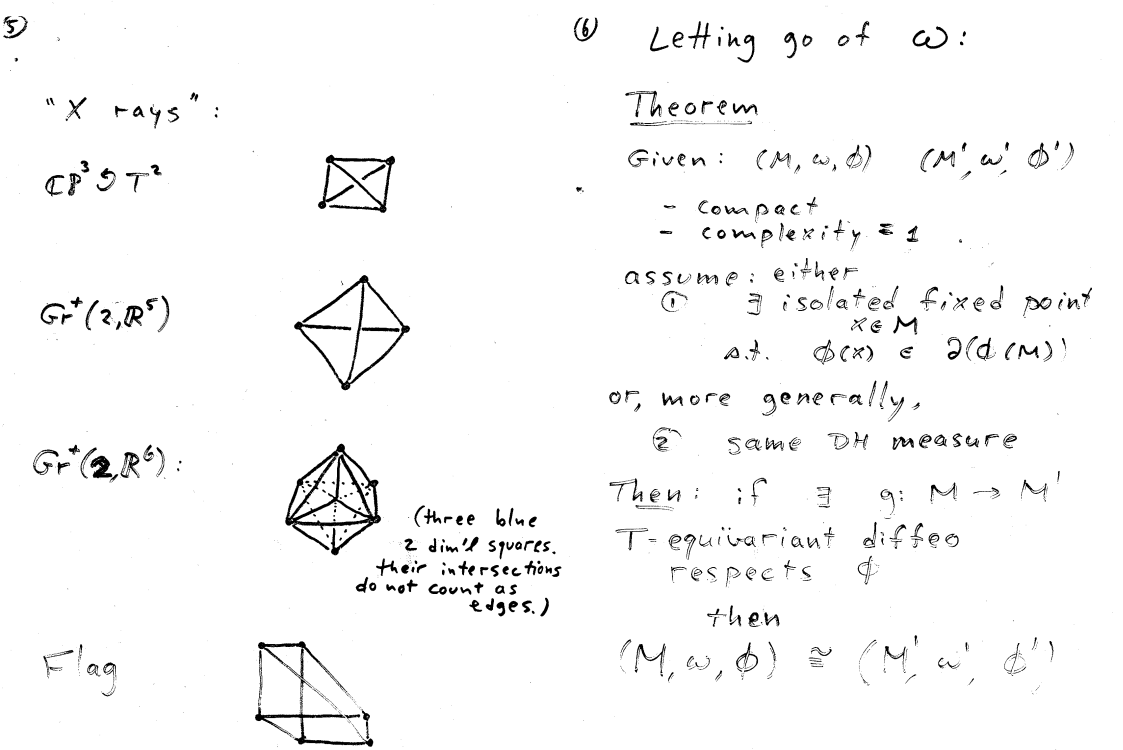 ⑤
"X rays":
ℂℙ³ ↺ T²
Gr⁺(2,ℝ⁵)
Gr⁺(2,ℝ⁶):
(three blue
2 dim'l squares.
their intersections
do not count as
edges.)
Flag
⑥
Letting go of ω:
Theorem
Given: (M, ω, ϕ) (M', ω', ϕ')
- compact
- complexity = 1
assume: either
① ∃ isolated fixed point
x ∈ M
s.t. ϕ(x) ∈ ∂(ϕ(M))
or, more generally,
② same DH measure
Then: if ∃ g: M → M'
T-equivariant diffeo
respects ϕ
then
(M, ω, ϕ) ≅ (M', ω', ϕ')